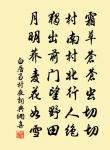 霜草苍苍虫切切
村南村北行人绝
独出前门望野田
月明荞麦花如雪
白居易村夜詞典網集